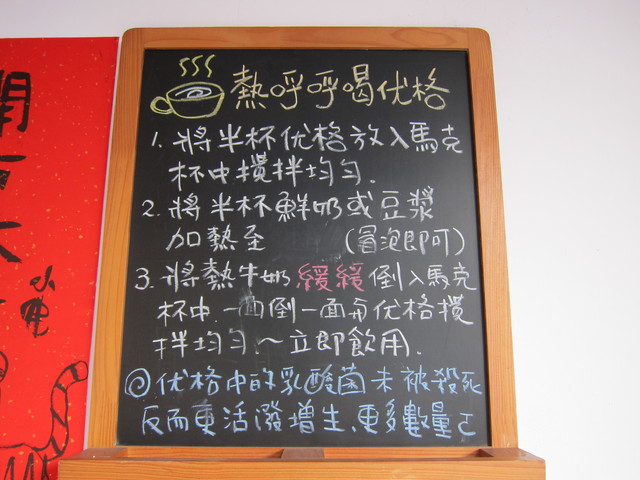 熱呼呼喝优格
1. 將半杯优格放入馬克
杯中攪拌均勻.
2. 將半杯鮮奶或豆漿
加熱至 (冒泡即可)
3. 將熱牛奶緩緩倒入馬克
杯中.一面倒一面与优格攪
拌均勻.~立即飲用.
◎优格中的乳酸菌未被殺死
反而更活潑增生.更多數量
開
大
小